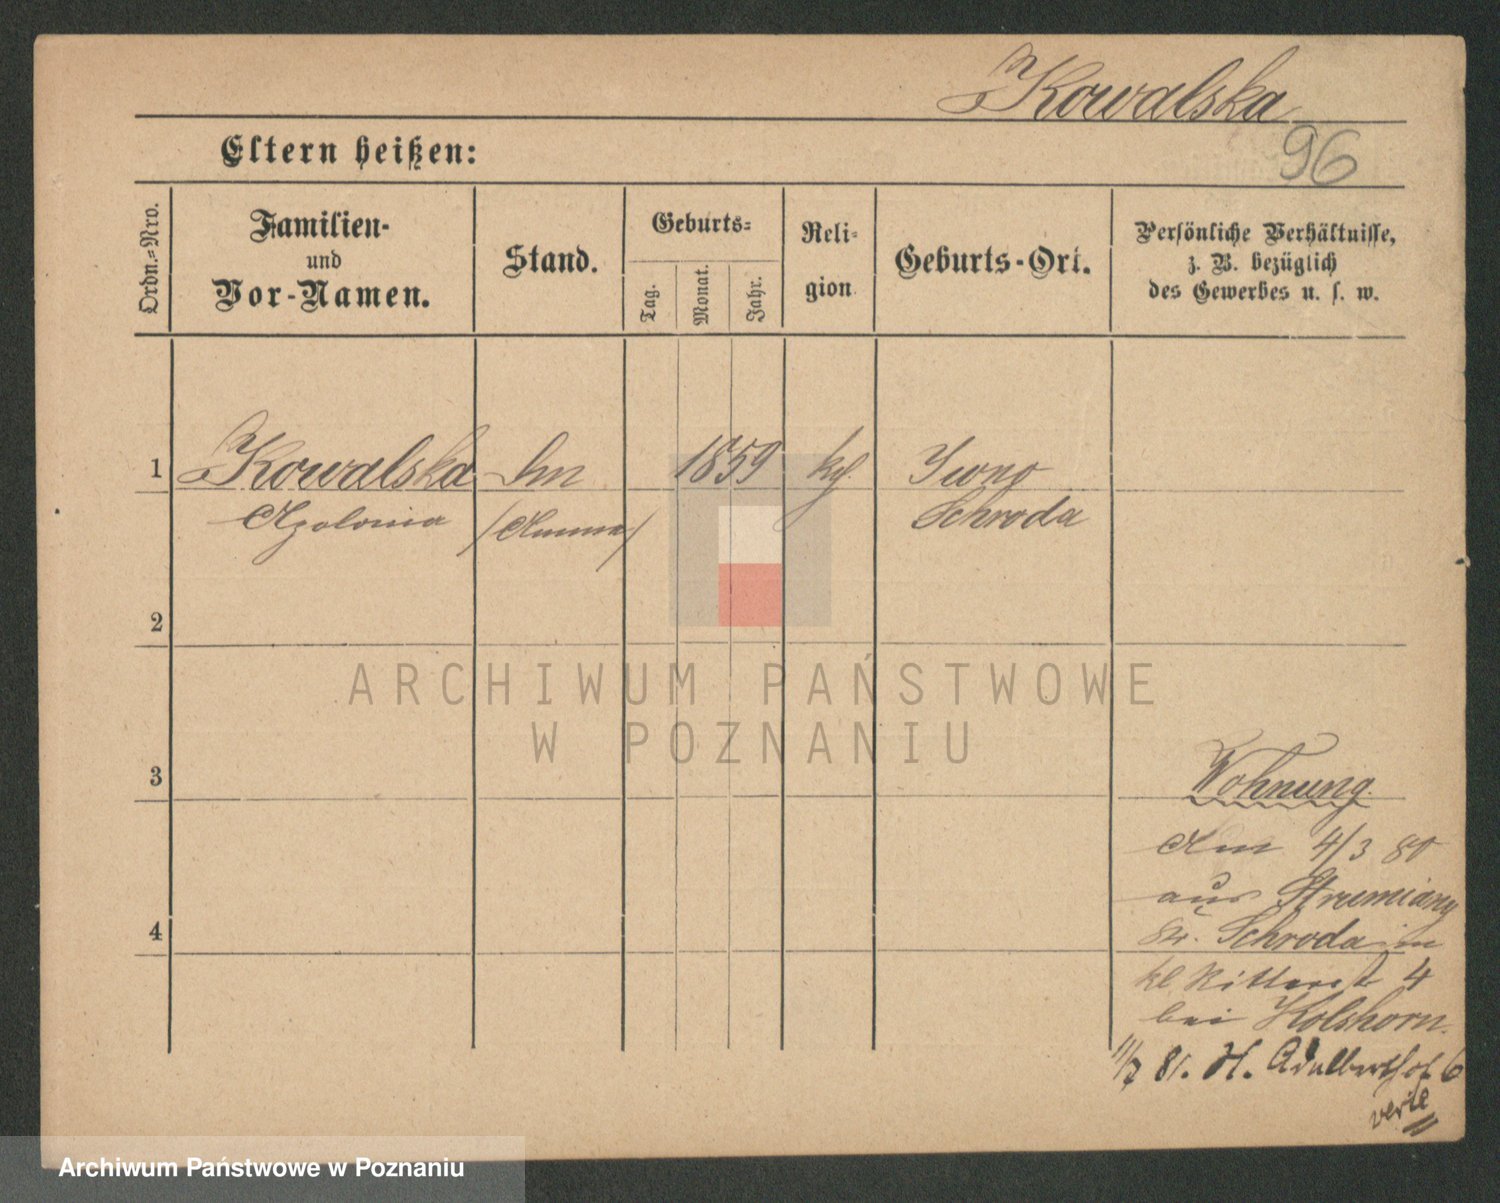 Kowalska
96
Eltern heißen:
Ordn.=Nro.
Familien-
und
Vor-Namen.
Stand.
Geburts=
Tag.
Monat.
Jahr.
Reli-
gion
Geburts-Ort.
Persönliche Verhältnisse,
z. B. bezüglich
des Gewerbes u. s. w.
1 Kowalska 1859 Iwno
Apolonia /Amme/ Schroda
2
ARCHIWUM PAŃSTWOWE
W POZNANIU
3
Wohnung.
Am 4/3 80
aus Strumiany
Kr. Schroda in
kl Ritterst 4
bei Kolshorn.
11/7 81. H. Adalbertst 6
4
Archiwum Państwowe w Poznaniu